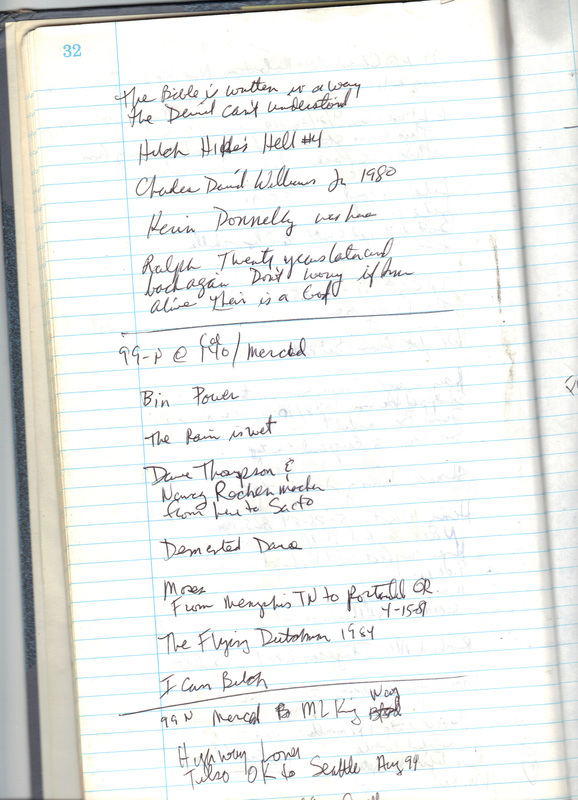 32
The Bible is written in a way
the Devil can't understand
Hitch Hike's Hell #4
Charles David Williams Jr 1980
Kevin Donnelly was here
Ralph Twenty years later and
back again Don't worry if
alive their is a God
99-N @ /Merced
Bin Power
The Rain is wet
Dave Thompson &
Nancy
from here to Sacto
Demented Dave
Moses
From Memphis TN to Portland OR.
4-15-81
The Flying Dutchman 1984
I Can Belch
99 N Merced @ ML King Way
Highway Lover
Tulsa OK to Seattle Aug 99